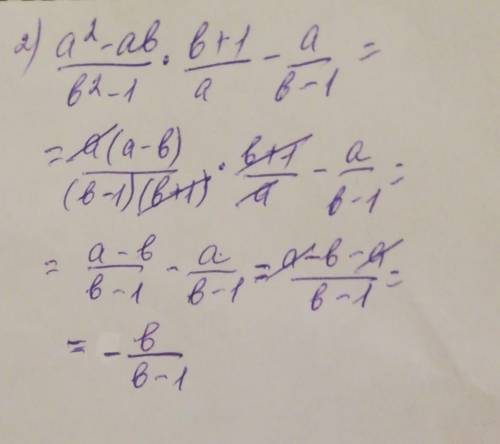 2) (a² - ab)/(b² - 1) · (b+1)/a - a/(b-1) =
= a(a-b)/((b-1)(b+1)) · (b+1)/a - a/(b-1) =
= (a-b)/(b-1) - a/(b-1) = (a-b-a)/(b-1) =
= - b/(b-1)